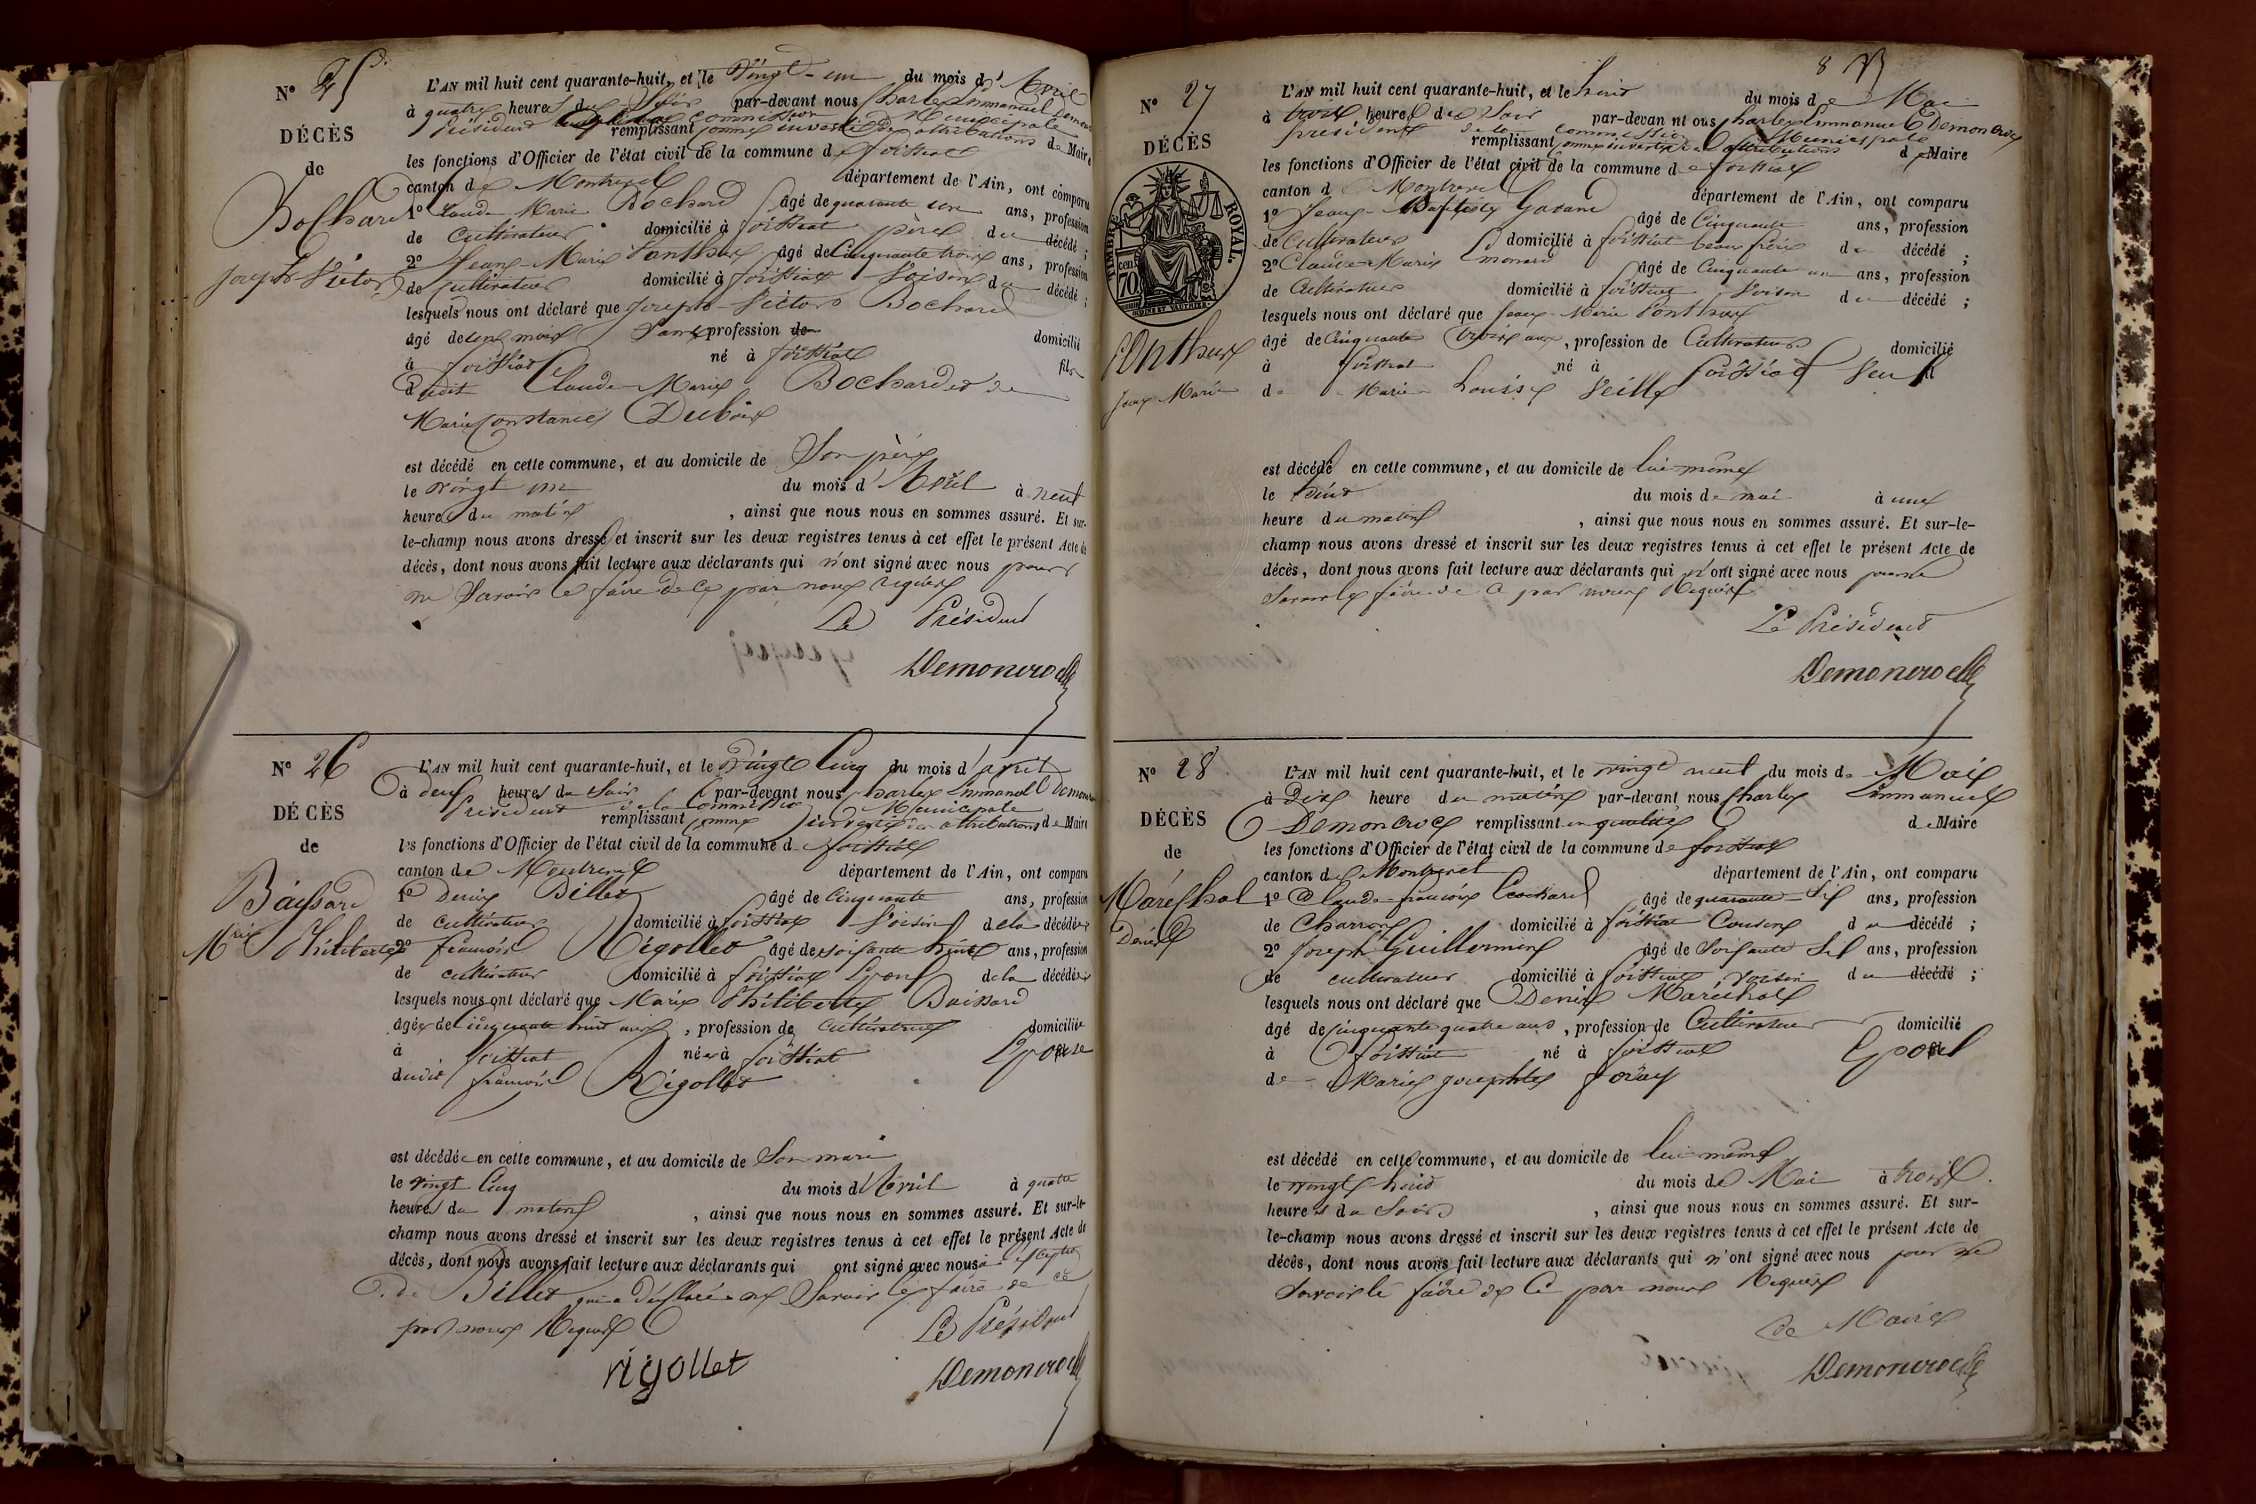 N° 25
DÉCÈS
de
Bochard
Joseph Victor
L'AN mil huit cent quarante-huit, et le Vingt-un du mois d'Avril
à quatre heures du Soir par-devant nous Charles Emmanuel Demoncroc
Président commission Municipale
remplissant comme investi des attributions de Maire
les fonctions d'Officier de l'état civil de la commune de foissiat
canton de Montrevel département de l'Ain, ont comparu
1° Claude Marie Bochard âgé de quarante un ans, profession
de Cultivateur domicilié à foissiat père du décédé ;
2° Jean-Marie Ponthus âgé de Cinquante trois ans, profession
de Cultivateur domicilié à foissiat Voisin du décédé ;
lesquels nous ont déclaré que Joseph-Victor Bochard
âgé de mois sans profession de domicilié
à foissiat né à foissiat fils
dudit Claude-Marie Bochard et de
Marie Constance Dubois
est décédé en cette commune, et au domicile de Son père
le vingt un du mois d'Avril à neuf
heures du matin , ainsi que nous nous en sommes assuré. Et sur-
le-champ nous avons dressé et inscrit sur les deux registres tenus à cet effet le présent Acte de
décès, dont nous avons fait lecture aux déclarants qui n'ont signé avec nous pour
ne Savoir le faire de ce par nous requis
Le Président
Demoncroc
N° 26
DÉCÈS
de
Baissard
Mie Philiberte
L'AN mil huit cent quarante-huit, et le Vingt Cinq du mois d'avril
à deux heures du Soir par-devant nous Charles Emmanuel Demoncroc
Président de la Commission Municipale
remplissant comme investi des attributions de Maire
les fonctions d'Officier de l'état civil de la commune de foissiat
canton de Montrevel département de l'Ain, ont comparu
1° Denis Billet âgé de Cinquante ans, profession
de cultivateur domicilié à foissiat Voisin de la décédée
2° françois Rigollet âgé de soixante huit ans, profession
de cultivateur domicilié à foissiat Epoux de la décédée
lesquels nous ont déclaré que Marie Philiberte Baissard
âgée de cinquante huit ans , profession de Cultivatrice domiciliée
à foissiat née à foissiat Epouse
dudit françois Rigollet
est décédée en cette commune, et au domicile de Son mari
le vingt Cinq du mois d'Avril à quatre
heures du matin , ainsi que nous nous en sommes assuré. Et sur-le-
champ nous avons dressé et inscrit sur les deux registres tenus à cet effet le présent Acte de
décès, dont nous avons fait lecture aux déclarants qui ont signé avec nous à l'exception
de Billet qui a déclaré ne Savoir le faire de ce
par nous Requis
Le Président
rigollet
Demoncroc
8
N° 27
DÉCÈS
TIMBRE ROYAL.
70
cen.
Ponthus
Jean Marie
L'AN mil huit cent quarante-huit, et le huit du mois de Mai
à trois heures du Soir par-devant nous Charles Emmanuel Demoncroc
président de la commission Municipale
remplissant comme investi des attributions de Maire
les fonctions d'Officier de l'état civil de la commune de foissiat
canton de Montrevel département de l'Ain, ont comparu
1° Jean-Baptiste âgé de Cinquante ans, profession
de Cultivateur domicilié à foissiat beau frère du décédé ;
2° Claude-Marie âgé de Cinquante un ans, profession
de Cultivateur domicilié à foissiat Voisin du décédé ;
lesquels nous ont déclaré que Jean Marie Ponthus
âgé de Cinquante trois ans , profession de Cultivateur domicilié
à foissiat né à foissiat Veuf
de Marie-Louise Veille
est décédé en cette commune, et au domicile de lui-même
le huit du mois de mai à une
heure du matin , ainsi que nous nous en sommes assuré. Et sur-le-
champ nous avons dressé et inscrit sur les deux registres tenus à cet effet le présent Acte de
décès, dont nous avons fait lecture aux déclarants qui n'ont signé avec nous pour ne
Savoir le faire de ce par nous Requis
Le Président
Demoncroc
N° 28
DÉCÈS
de
Maréchal
Denis
L'AN mil huit cent quarante-huit, et le vingt neuf du mois de Mai
à Dix heure du matin par-devant nous Charles Emmanuel
Demoncroc remplissant en qualité de Maire
les fonctions d'Officier de l'état civil de la commune de foissiat
canton de Montrevel département de l'Ain, ont comparu
1° Claude-françois âgé de quarante-Six ans, profession
de Charron domicilié à foissiat Cousin du décédé ;
2° Joseph Guillermin âgé de Soixante Six ans, profession
de cultivateur domicilié à foissiat voisin du décédé ;
lesquels nous ont déclaré que Denis Maréchal
âgé de cinquante quatre ans , profession de Cultivateur domicilié
à foissiat né à foissiat Epoux
de Marie Josephte foray
est décédé en cette commune, et au domicile de lui-même
le vingt huit du mois de Mai à trois
heures du Soir , ainsi que nous nous en sommes assuré. Et sur-
le-champ nous avons dressé et inscrit sur les deux registres tenus à cet effet le présent Acte de
décès, dont nous avons fait lecture aux déclarants qui n'ont signé avec nous pour ne
Savoir le faire de ce par nous Requis
Le Maire
Demoncroc